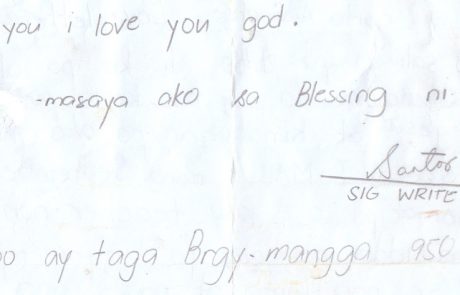 you i love you god.
-masaya ako sa Blessing ni
Santos
SIG WRITE
ay taga Brgy-mangga 950